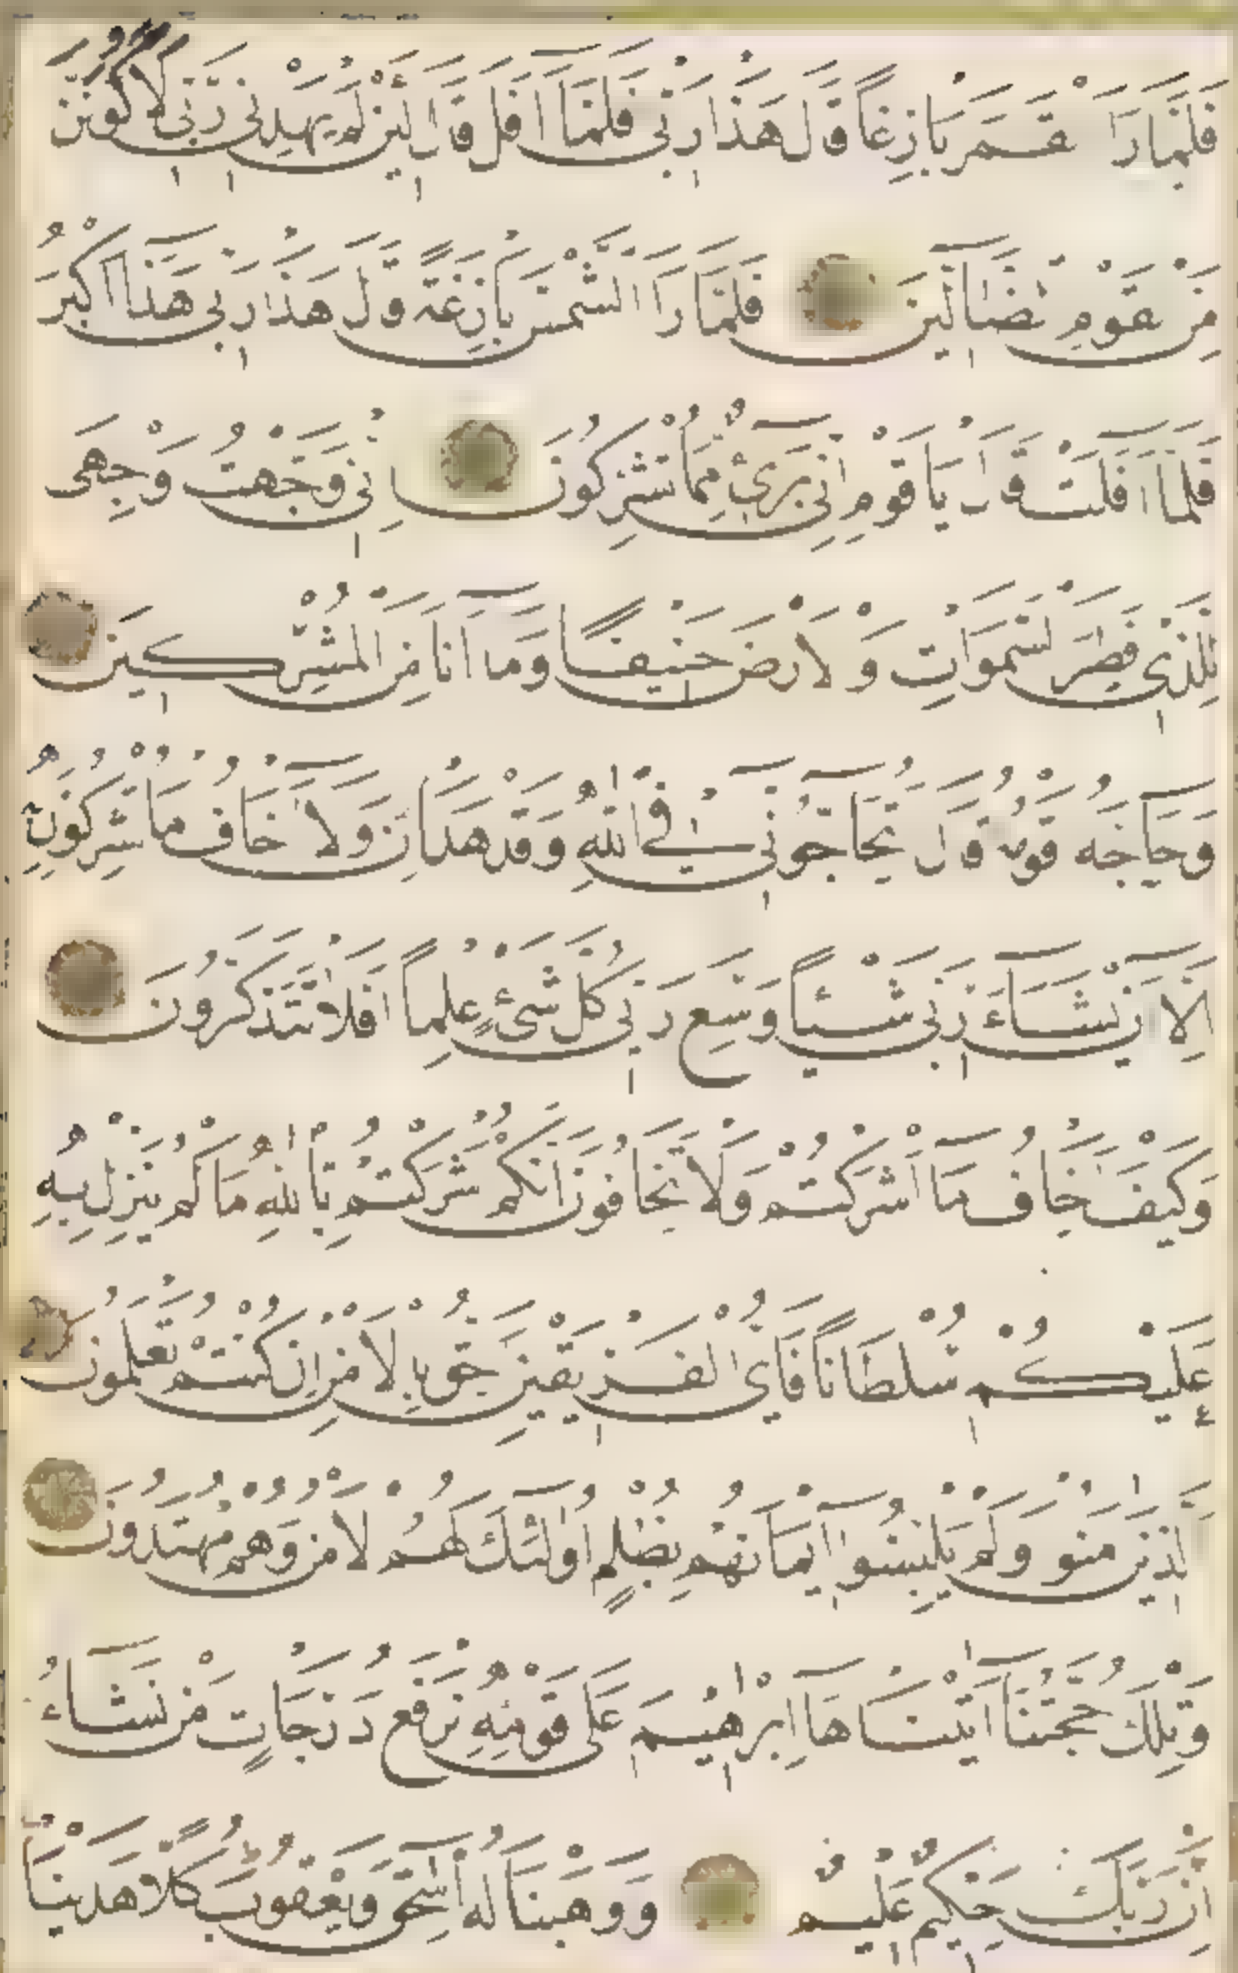 فَلَمَّا رَأَ الْقَمَرَ بَازِغًا قَالَ هَذَا رَبِّي فَلَمَّا أَفَلَ قَالَ لَئِنْ لَمْ يَهْدِنِي رَبِّي لَأَكُونَنَّ
مِنَ الْقَوْمِ الضَّالِّينَ فَلَمَّا رَأَ الشَّمْسَ بَازِغَةً قَالَ هَذَا رَبِّي هَذَا أَكْبَرُ
فَلَمَّا أَفَلَتْ قَالَ يَا قَوْمِ إِنِّي بَرِيءٌ مِمَّا تُشْرِكُونَ إِنِّي وَجَّهْتُ وَجْهِيَ
لِلَّذِي فَطَرَ السَّمَوَاتِ وَالْأَرْضَ حَنِيفًا وَمَا أَنَا مِنَ الْمُشْرِكِينَ
وَحَاجَّهُ قَوْمُهُ قَالَ أَتُحَاجُّونِّي فِي اللَّهِ وَقَدْ هَدَانِ وَلَا أَخَافُ مَا تُشْرِكُونَ بِهِ
إِلَّا أَنْ يَشَاءَ رَبِّي شَيْئًا وَسِعَ رَبِّي كُلَّ شَيْءٍ عِلْمًا أَفَلَا تَتَذَكَّرُونَ
وَكَيْفَ أَخَافُ مَا أَشْرَكْتُمْ وَلَا تَخَافُونَ أَنَّكُمْ أَشْرَكْتُمْ بِاللَّهِ مَا لَمْ يُنَزِّلْ بِهِ
عَلَيْكُمْ سُلْطَانًا فَأَيُّ الْفَرِيقَيْنِ أَحَقُّ بِالْأَمْنِ إِنْ كُنْتُمْ تَعْلَمُونَ
الَّذِينَ آمَنُوا وَلَمْ يَلْبِسُوا إِيمَانَهُمْ بِظُلْمٍ أُولَئِكَ لَهُمُ الْأَمْنُ وَهُمْ مُهْتَدُونَ
وَتِلْكَ حُجَّتُنَا آتَيْنَاهَا إِبْرَاهِيمَ عَلَى قَوْمِهِ نَرْفَعُ دَرَجَاتٍ مَنْ نَشَاءُ
إِنَّ رَبَّكَ حَكِيمٌ عَلِيمٌ وَوَهَبْنَا لَهُ إِسْحَقَ وَيَعْقُوبَ كُلًّا هَدَيْنَا